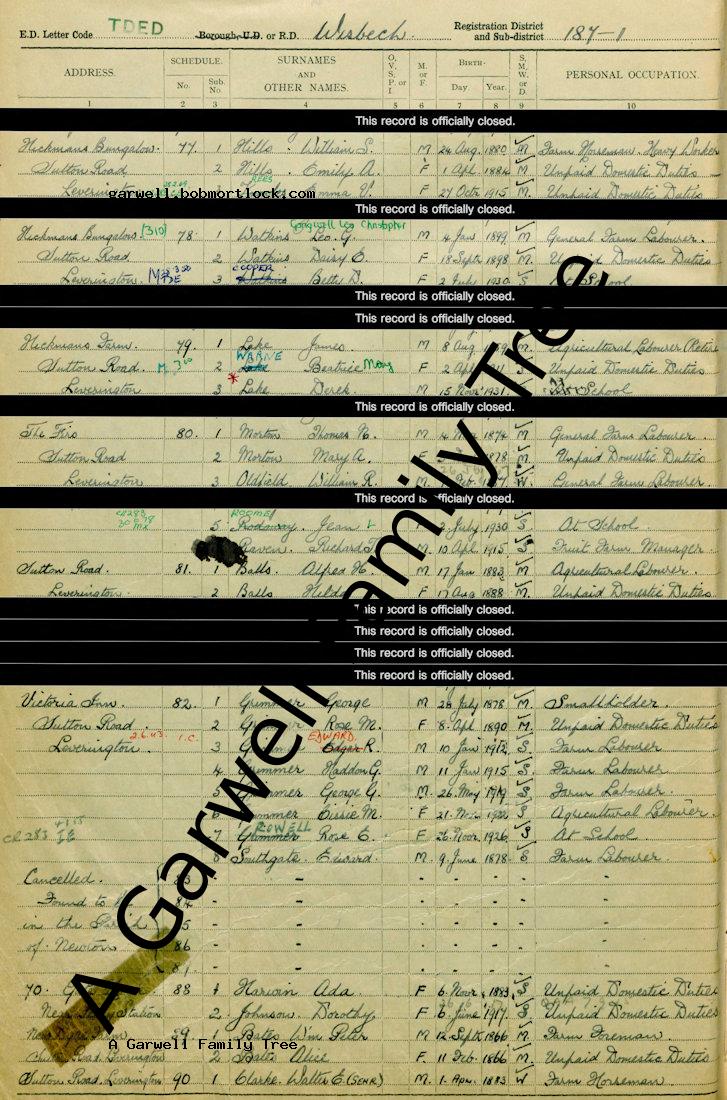 E.D. Letter Code TDED Borough, U.D. or R.D. Wisbech. Registration District and Sub-district 187-1
ADDRESS. SCHEDULE. No. Sub. No. SURNAMES AND OTHER NAMES. O, V, S, P, or I M. or F. BIRTH- Day. Year. S, M, W, or D. PERSONAL OCCUPATION.
1 2 3 4 5 6 7 8 9 10
This record is officially closed.
Hickmans Bungalow. 77. 1 Hills. William S. M 24 Aug. 1880 M Farm Horseman. Heavy Worker
Sutton Road 2 Hills. Emily A. F 1 Apl. 1884 M. Unpaid Domestic Duties
Leverington Emma V. F 27 Octr 1915 M. Unpaid Domestic Duties
garwell.bobmortlock.com
This record is officially closed.
Hickmans Bungalow. (310) 78. 1 Watkins Leo. G. M 4 Jan 1899 M General Farm Labourer.
Sutton Road. 2 Watkins Daisy E. F 18 Septr 1898 M Unpaid Domestic Duties
Leverington. 3 COOPER Watkins Betty D. F 2 July 1930 S At School
This record is officially closed.
This record is officially closed.
Hickmans Farm. 79. 1 Lake James. M 8 Aug M. Agricultural Labourer
Sutton Road. 2 WARNE Lake Beatrice May F 2 Apl Unpaid Domestic Duties
Leverington 3 Lake Derek M 15 Novr 1931. School
This record is officially closed.
The Firs 80. 1 Morton Thomas N. M 1874 M General Farm Labourer.
Sutton Road 2 Morton Mary A. F 1878 M. Unpaid Domestic Duties
Leverington 3 Oldfield William R. M W. General Farm Labourer.
This record is officially closed.
5 Rodaway Jean 2 July 1930 S At School.
Raven. Richard T. M 10 Apl. 1915 S Fruit Farm Manager.
Sutton Road. 81. 1 Balls Alfred H. M 17 Jan 1883 M. Agricultural Labourer.
Leverington. 2 Balls Hilda F 17 Aug 1888 M. Unpaid Domestic Duties.
This record is officially closed.
This record is officially closed.
This record is officially closed.
This record is officially closed.
Victoria Inn. 82. 1 Grimmer George M. 28 July 1878 M. Smallholder.
Sutton Road 2 Grimmer Rose M. F 8. Apl. 1890 M. Unpaid Domestic Duties
Leverington. 2.6.43. I.C. 3 EDWARD Edgar R. M 10 Jan 1912 S Farm Labourer
4 Grimmer Haddon G. M 11 Jan 1915 S Farm Labourer
5 Grimmer George G. M. 26. May 1919 S. Farm Labourer.
6 Grimmer Cissie M. F 21. S Agricultural Labourer.
CR 283 7 ROWELL Grimmer Rose E. F 26 Novr 1926 S At School
8 Southgate. Edward. M. 9. June 1878. S Farm Labourer.
Cancelled.
Found to be 84
in the Parish 85
of Newton 86
87
70. 88 1 Harwin Ada F 6 Novr 1883 S Unpaid Domestic Duties
Station 2. Johnson. Dorothy F 6 June 1917. S Unpaid Domestic Duties
89 1 Bates Wm Peter M 12 Septr 1866 M Farm Foreman.
Leverington 2 Bates Alice F 11 Feb. 1866 M. Unpaid Domestic Duties
Sutton Road. Leverington. 90 1 Clarke. Walter E. (SENR) M. 1. Apr. 1883 W Farm Horseman.
A Garwell Family Tree
A Garwell Family Tree